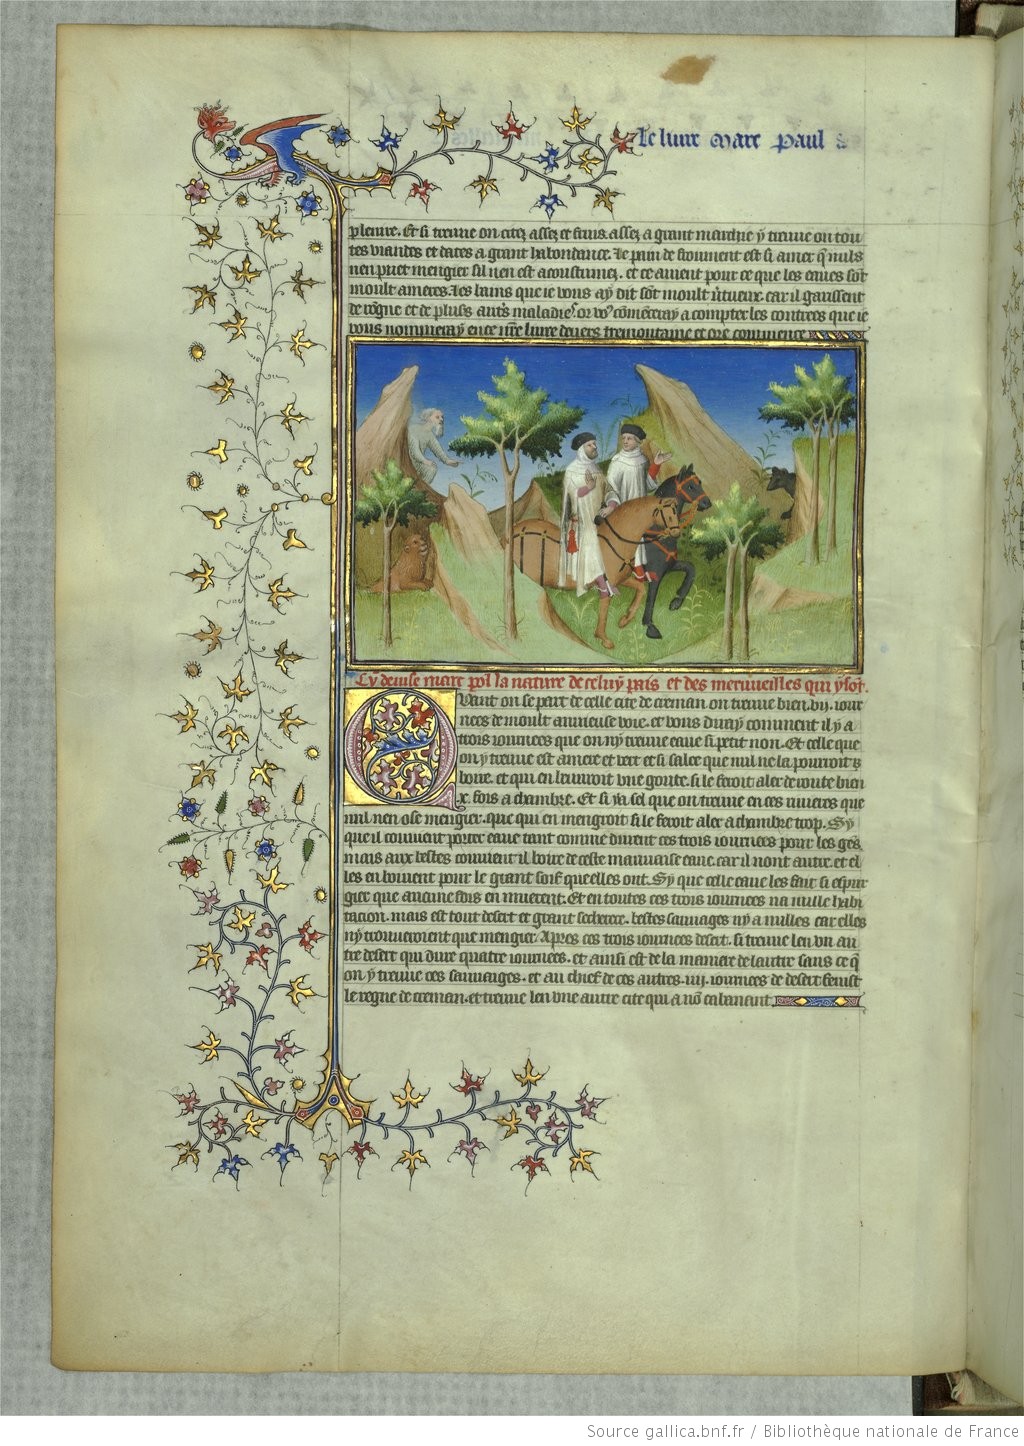 Le livre Marc Paul &
pleure. Et si treuve on citez assez et bains assez a grant marchie y treuve on tou
tes viandes et dates a grant habondance. Le pain de froument est si amer q̃ nuls
nen puet mengier sil nen est acoustumez. et ce avient pour ce que les eaues sõt
moult ameres. Les bains que ie vous ay dit sõt moult ṽtueux. car il garissent
de roigne et de plusʳˢ autʳˢ maladieˢ. or voˢ cõmenceray a compter les contrees que ie
vous nommeray en ce nr̃e livre devers tremontaine et ore commence
Cy devise marc pol la nature de celuy pais et des merveilles qui y sõt.
Quant on se part de celle cite de creman on treuve bien .vij. iour
nees de moult anuieuse voie. et vous diray comment il y a
trois iournees que on ny treuve eaue si petit non. Et celle que
on y treuve est amere et vert et si salee que nul ne la pourroit
boire. et qui en buvroit une goute. si le feroit aler de voute bien
x. fois a chambre. Et si ya sel que on treuve en ces rivieres que
nul nen ose mengier. que qui en mengroit si le feroit aler a chambre trop. Sy
que il convient porter eaue tant comme durent ces trois iournees pour les gẽs
mais aux bestes convient il boire de ceste mauvaise eaue. car il nont autre. et el
les en boivent pour le grant soif que elles ont. Sy que celle eaue les fait si espur
gier que aucune fois en muerent. Et en toutes ces trois iournees na nulle habi
tacion. mais est tout desert et grant secherece. bestes sauvages ny a nulles car elles
ny trouveroient que mengier. Apres ces trois iournees desert. si treuve len un au
tre desert qui dure quatre iournees. et ainsi est de la maniere de lautre sans ce q̃
on y treuve ces sauvages. et au chief de ces autres .iiij. iournees de desert fenist
le regne de creman. et treuve len une autre cite qui a nõ cabanant.
Source gallica.bnf.fr / Bibliothèque nationale de France